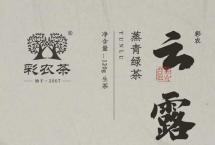 彩农
云露
蒸青绿茶
YUNLU
净含量：120g 生茶
®
彩农茶
始于·2007